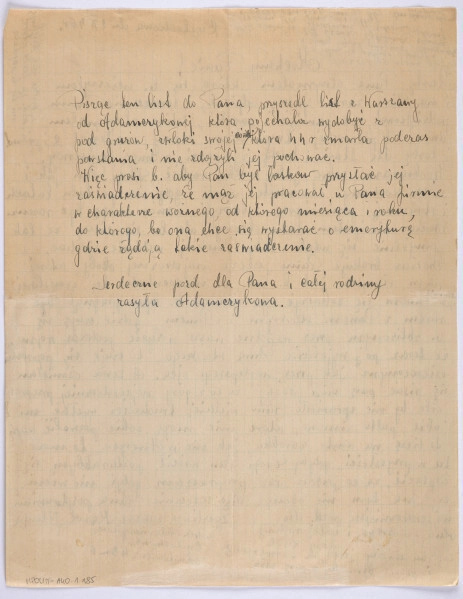 Pisząc ten list do Pana, przyszedł list z Warszawy
od Adamczykowej która pojechała wydobyć z
pod gruzów, zwłoki swojej córki, która zmarła podczas
powstania i nie zdążyli jej pochować.
Więc prosi b. aby Pan był łaskaw przysłać jej
zaświadczenie, że mąż jej pracował w Pana firmie
w charakterze woźnego, od którego miesiąca i roku,
do którego, bo ona chce się wystarać o emeryturę
gdzie żądają takie zaświadczenie.
Serdeczne pozd. dla Pana i całej rodziny
zasyła Adamczykowa.